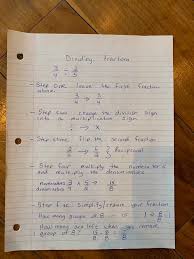 Dividing Fractions
3/4 ÷ 2/5
- Step One leave the first fraction
alone
3/4 → 3/4
- Step two change the division sign
into a multiplication sign
÷ → x
- Step three flip the second fraction
2/5 → 5/2 Reciprocal
- Step four multiply the numerators
and multiply the denominators
numerators 3 x 5 → 15
denominators 4 2 8
- Step five simplify
How many groups of 8
How many are left when you remove
group of 8?